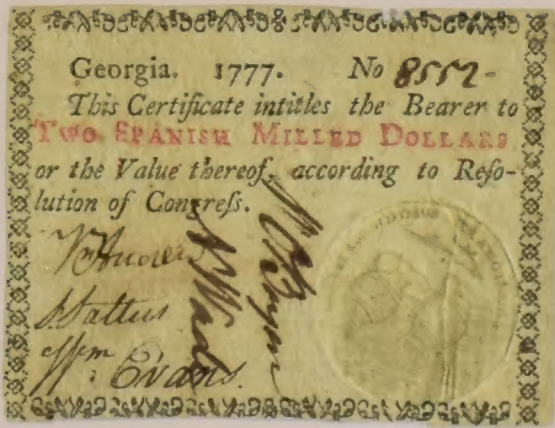 Georgia. 1777. No 8552-
This Certificate intitles the Bearer to
TWO SPANISH MILLED DOLLARS
or the Value thereof, according to Reſo-
lution of Congreſs.
Wm
Evans.